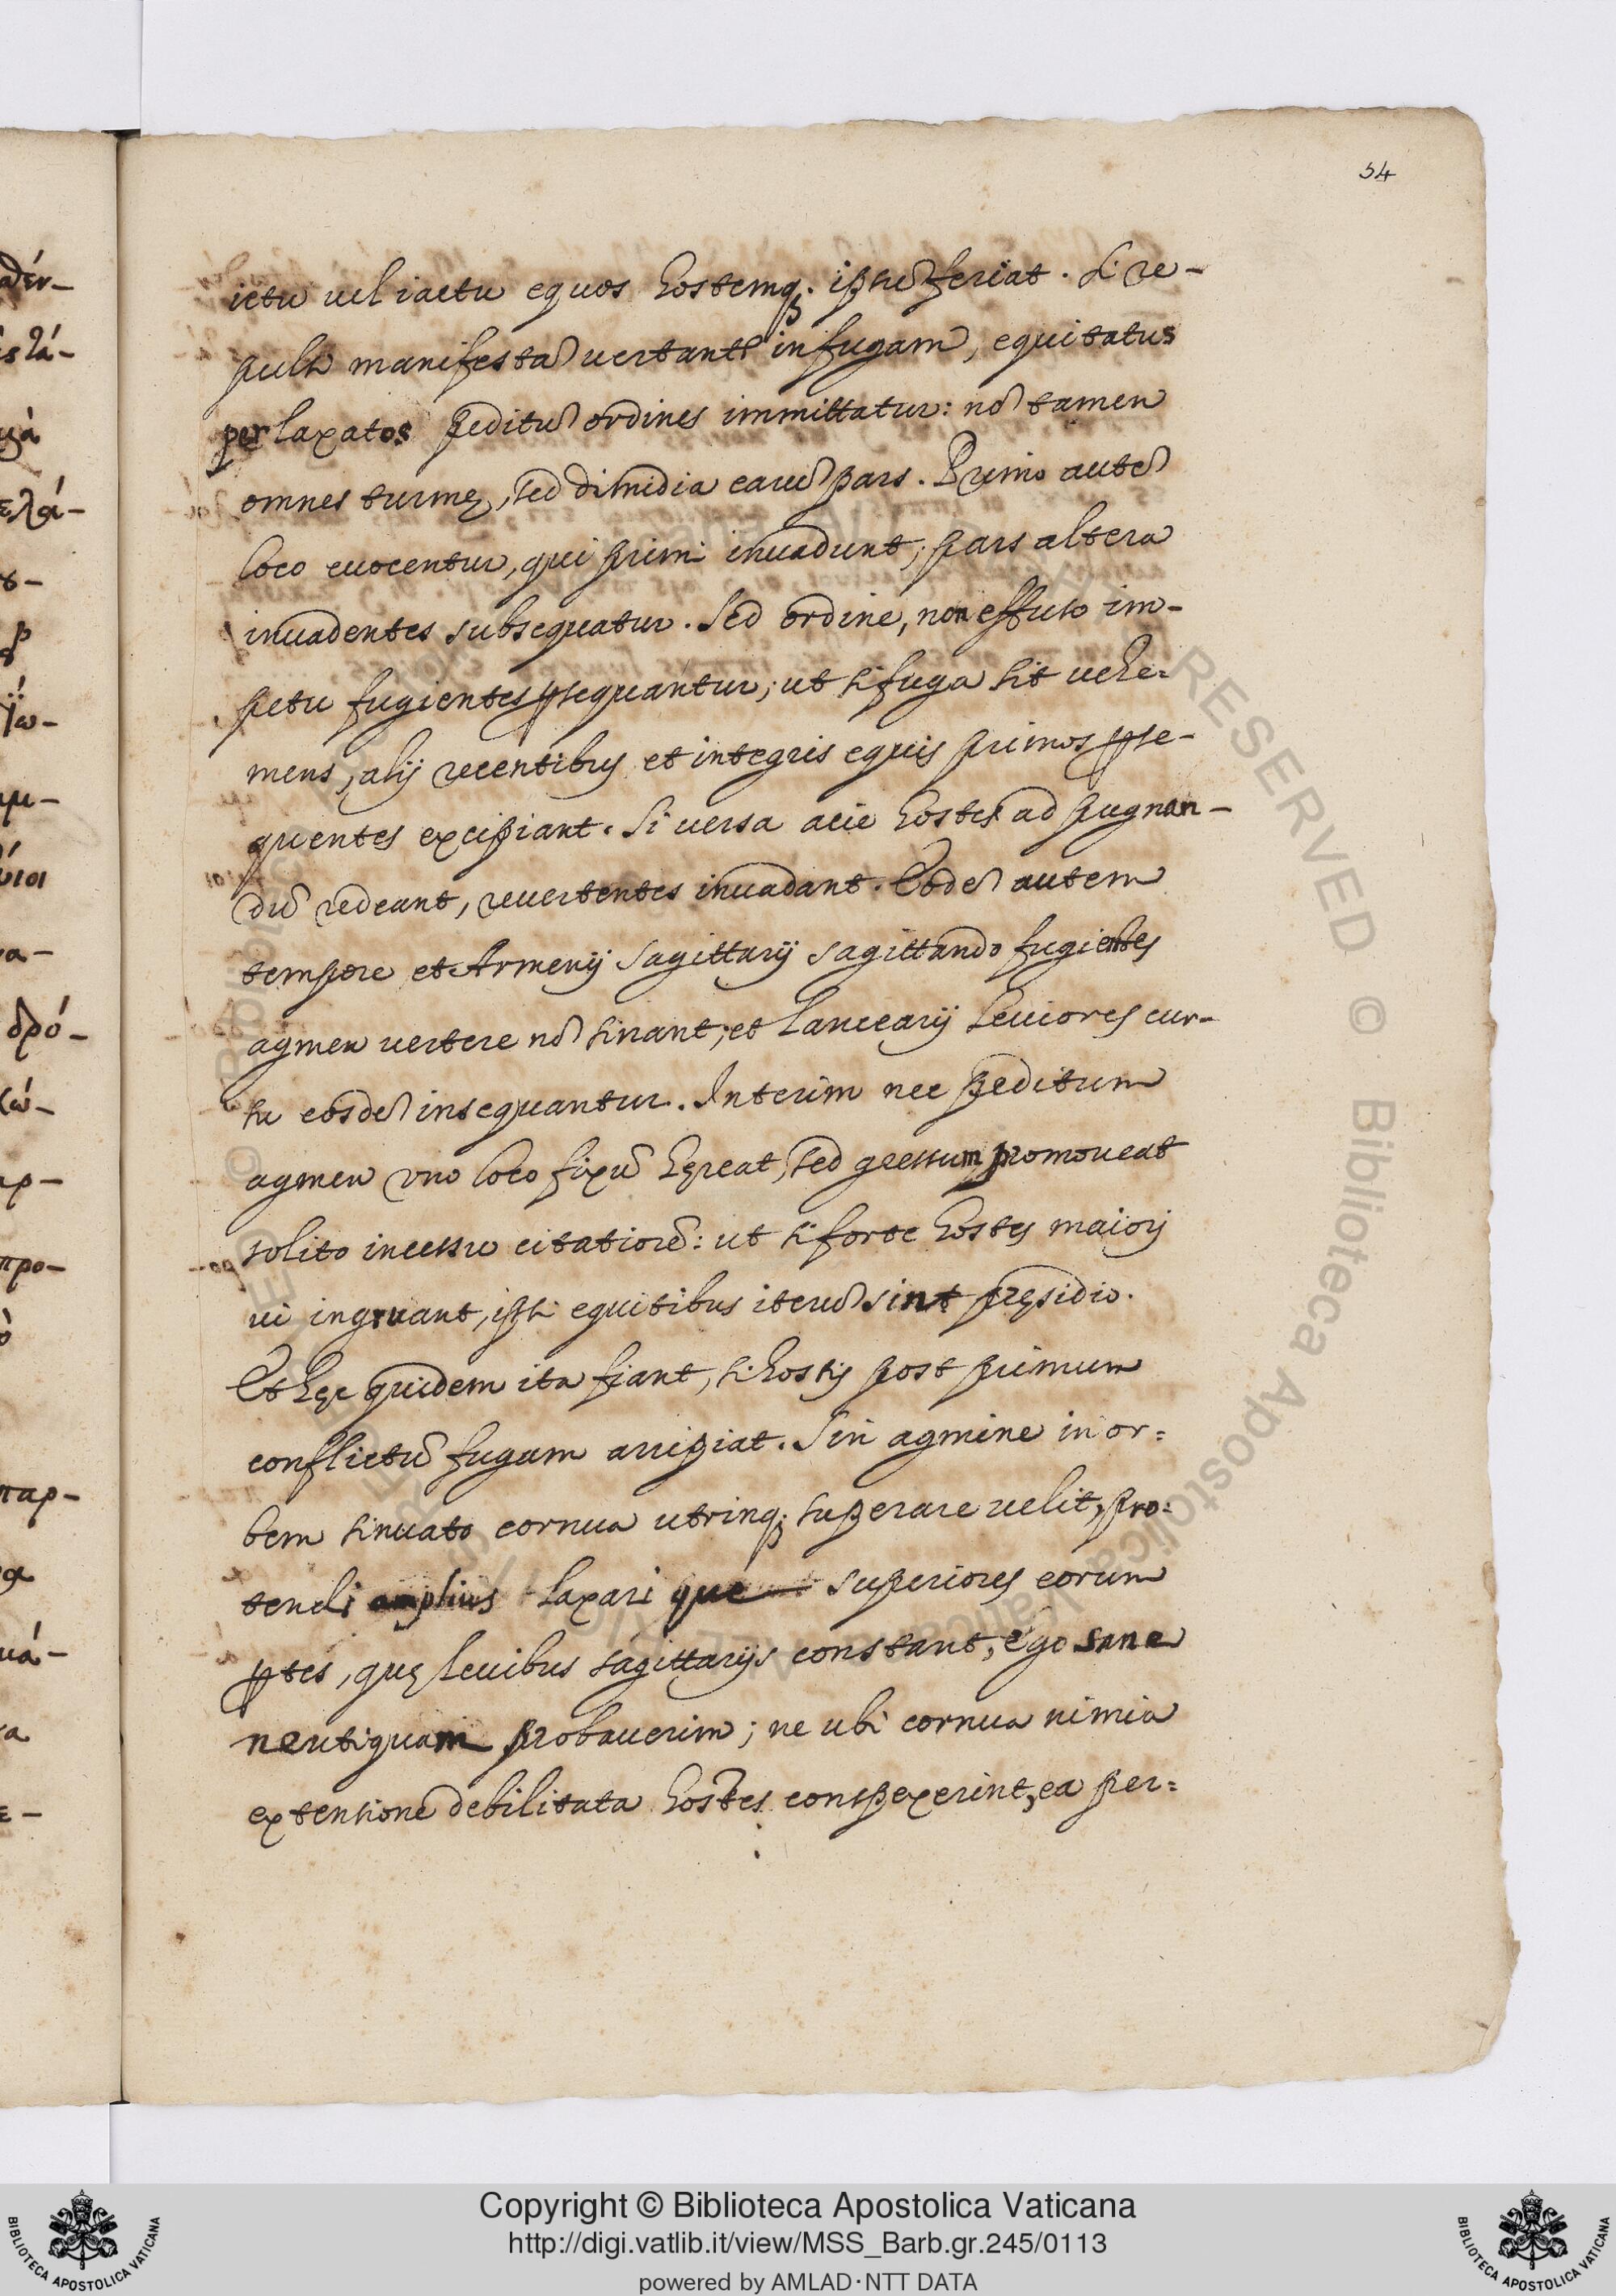 54
ictu uel iactu equos hostemq; ipsũ feriat. Si re-
pulsi manifestã uertantr in fugam, equitatus
per laxatos peditũ ordines immittatur: nõ tamen
omnes turmę, sed dimidia earũ pars. Primo autẽ
loco euocentur, qui primi inuadunt; pars altera
inuadentes subsequatur. Sed ordine, non effuso im-
petu fugientes ꝓsequantur; ut si fuga sit uehe=
mens, alij recentibus et integris equis primos ꝓse-
quentes excipiant. Si uersa acie hostes ad pugnan-
dũ redeant, reuertentes inuadant. Eodẽ autem
tempore et Armenij sagittarij sagittando fugientes
agmen uertere nõ sinant; et Lancearij leuiores cur-
su eosdẽ insequantur. Interim nec peditum
agmen uno loco fixũ hęreat, sed gressum promoueat
solito incessu citatiorẽ: ut si forte hostes maiori
ui ingruant, ipsi equitibus iterũ sint pręsidio.
Et hęc quidem ita fiant, si hostis post primum
conflictũ fugam arripiat. Sin agmine in or=
bem sinuato cornua utrinq; superare uelit, pro=
tendi amplius laxari que superiores eorum
ꝑtes, quę leuibus sagittarijs constant, ego sane
neutiquam probauerim; ne ubi cornua nimia
extensione debilitata hostes conspexerint, ea per=
Copyright © Biblioteca Apostolica Vaticana
http://digi.vatlib.it/view/MSS_Barb.gr.245/0113
powered by AMLAD·NTT DATA
BIBLIOTECA APOSTOLICA VATICANA
BIBLIOTECA APOSTOLICA VATICANA